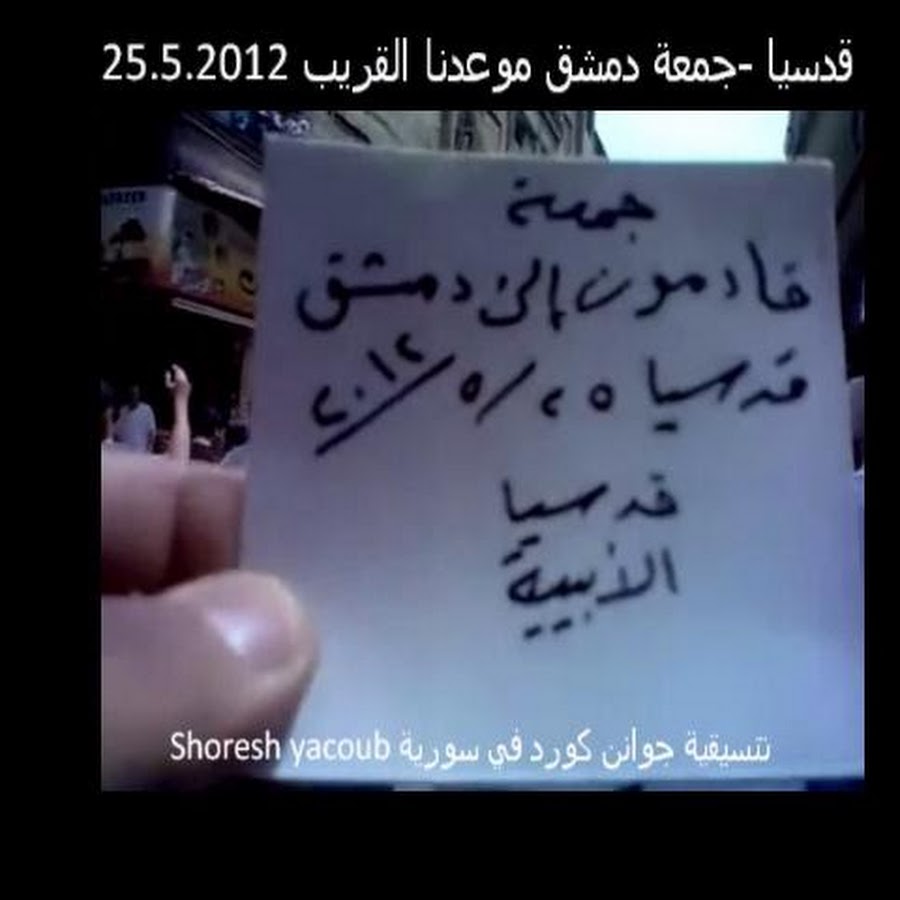 قدسيا -جمعة دمشق موعدنا القريب 25.5.2012
جمعة
قادمون إلى دمشق
قدسيا ٢٥/٥/٢٠١٢
قدسيا
الأبية
تنسيقية جوانن كورد في سورية Shoresh yacoub